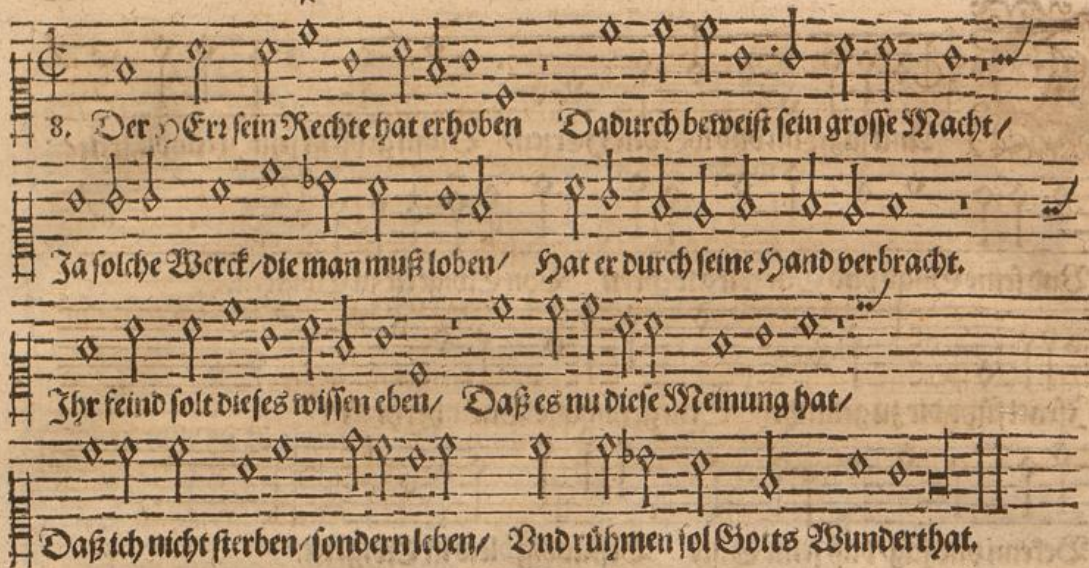 8. Der HErr sein Rechte hat erhoben Dadurch beweist sein grosse Macht/
Ja solche Werck/die man muß loben/ Hat er durch seine Hand verbracht.
Ihr feind solt dieses wissen eben/ Daß es nu diese Meinung hat/
Daß ich nicht sterben/sondern leben/ Vnd rühmen sol Gotts Wunderthat.